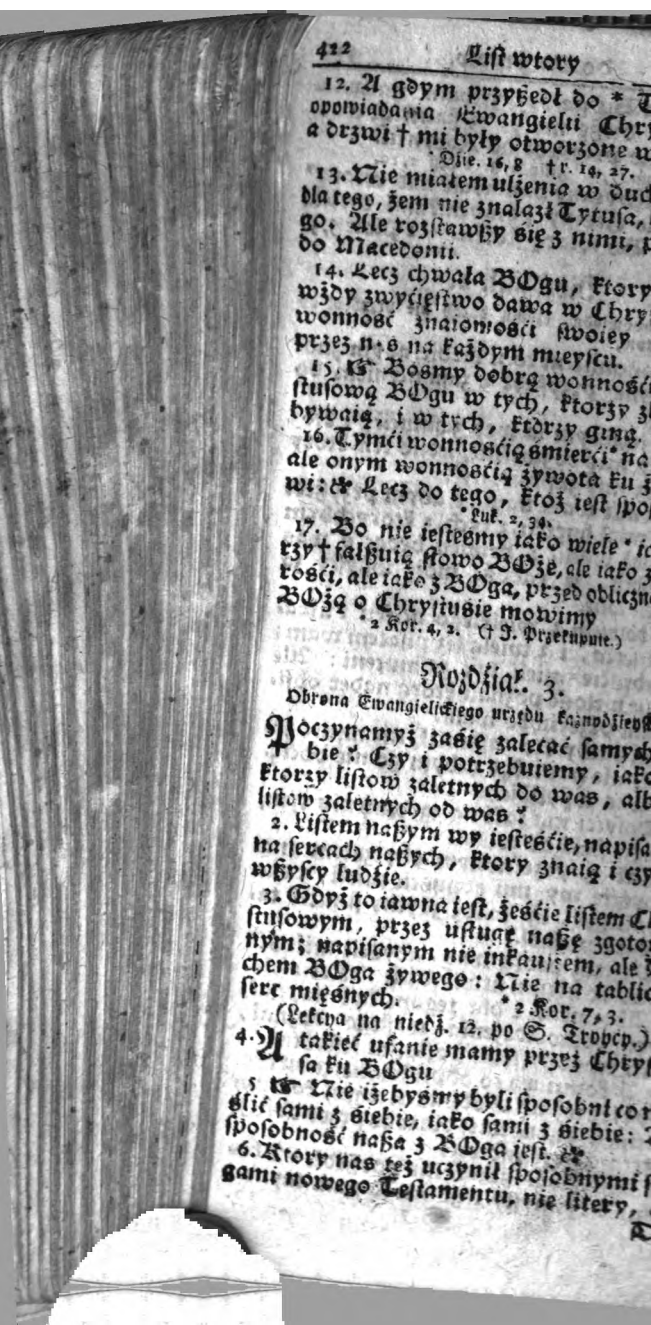 422 List wtory
12. A gdym przyßedł do * T
opowiadania Ewangielii Chry
a drzwi † mi były otworzone w
* Dzie. 16, 8 † r. 14, 27.
13. Nie miałem ulżenia w duc
dla tego, żem nie znalazł Tytusa,
go. Ale rozstawßy się z nimi, p
do Macedonii.
14. Lecz chwała BOgu, ktory
wżdy zwyćięstwo dawa w Chry
wonność znaiomośći swoiey
przez n·s na każdym mieyscu.
15. ☞ Bosmy dobrą wonnośći
stusową BOgu w tych, ktorzy zb
bywaią, i w tych, ktorzy giną.
16. Tymći wonnośćią śmierći * na
ale onym wonnośćią żywota ku ż
wi: Lecz do tego, ktoż iest spos
* Luk. 2, 34.
17. Bo nie iestesmy iako wiele * ic
rzy † fałßuią słowo BOże, ale iako z
rośći, ale iako z BOga, przed obliczno
BOżą o Chrystusie mowimy
* 2 Kor. 4, 2. († J. Przekupnie.)
Rozdźiał. 3.
Obrona Ewangielickiego urzędu kaznodźieysk
POczynamyż zasię zalecać samych
bie? Czy i potrzebuiemy, iako
ktorzy listow zaletnych do was, alb
listow zaletnych od was?
2. Listem naßym wy iesteśćie, napisa
na sercach naßych, ktory znaią i czy
wßyscy ludźie.
3. Gdyż to iawna iest, żeśćie listem Ch
stusowym, przez usługę naßę zgoto
nym; napisanym nie inkaustem, ale D
chem BOga żywego: Nie na tablic
serc mięsnych. * 2 Kor. 7, 3.
(Lekcya na niedź. 12. po S. Troycy.)
4. A takieć ufanie mamy przez Chrys
sa ku BOgu
5 ☞ Nie iżebyśmy byli sposobni co m
ślić sami z siebie, iako sami z siebie:
sposobność naßa z BOga iest.
6. Ktory nas też uczynił sposobnymi s
gami nowego Testamentu, nie litery,